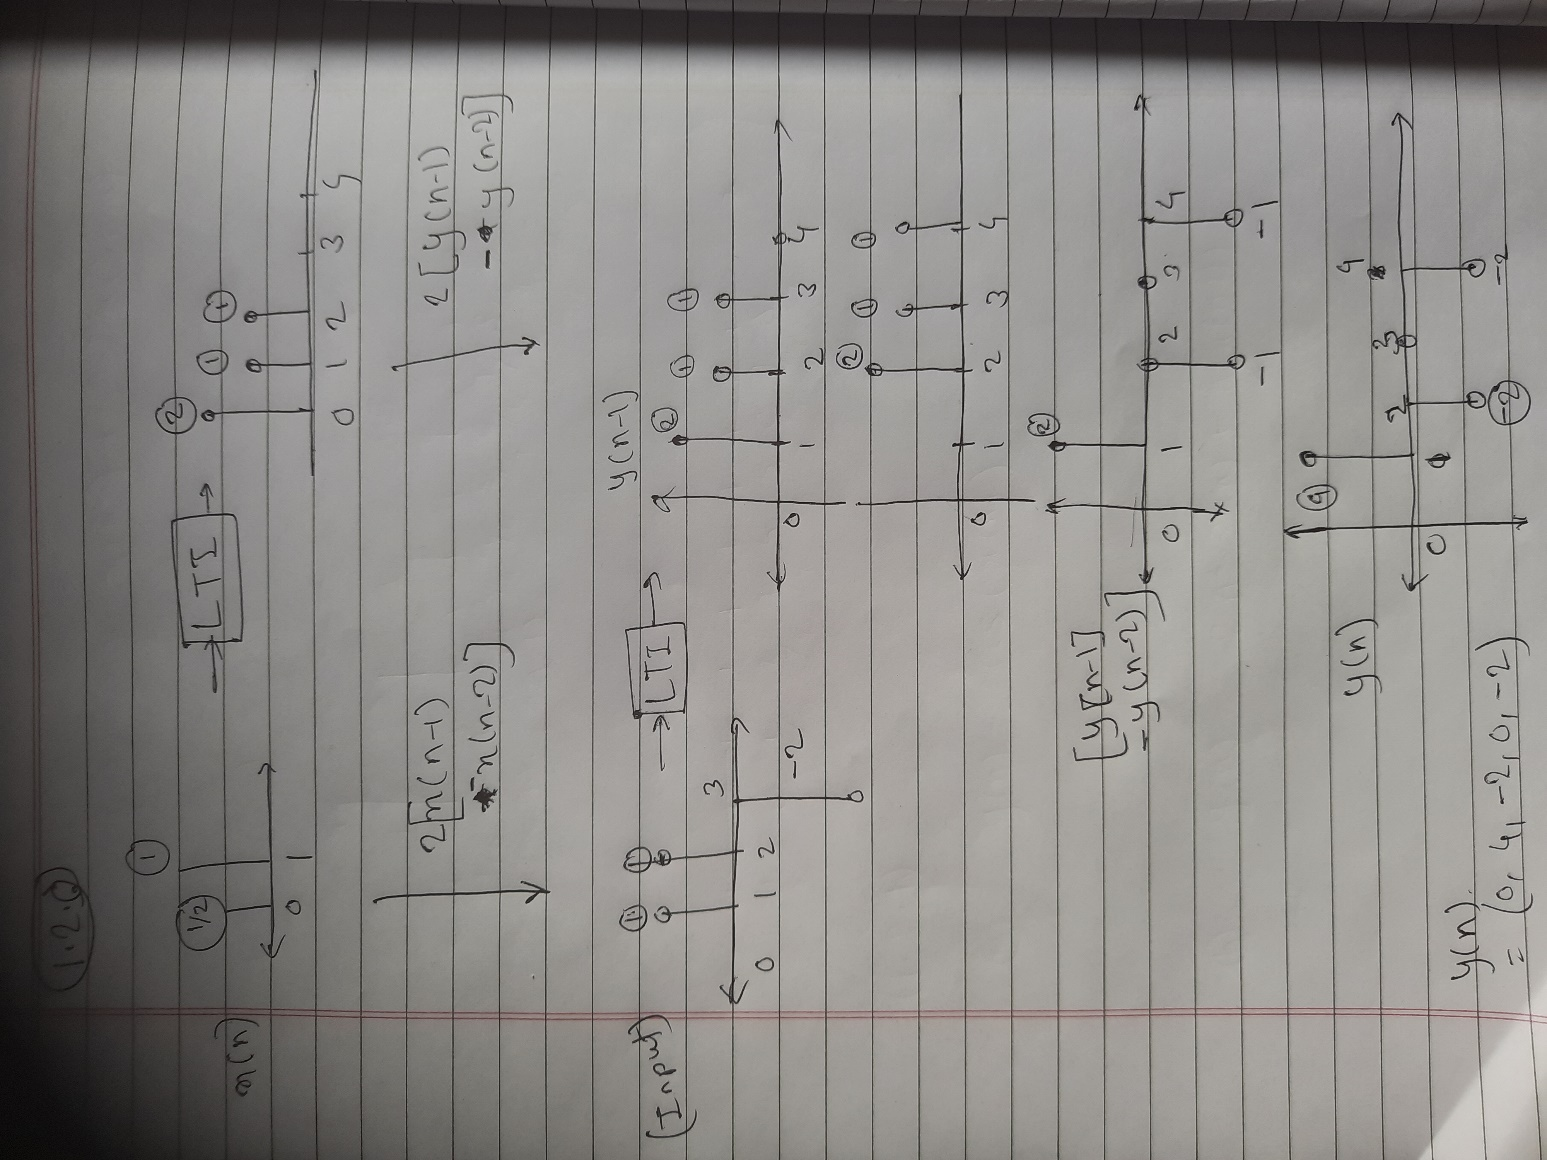 1.2.Q
x(n)
1/2
1
0 1
→ LTI →
2 1 1
0 1 2 3 4
2[x(n-1)
- x(n-2)]
2[y(n-1)
- y(n-2)]
(Input)
1 1 3
0 1 2 -2
→ LTI →
y(n-1)
2 1 1
0 1 2 3 4
2 1 1
0 1 2 3 4
[y[n-1]
- y(n-2)]
2
0 1 2 3 4
-1 -1
y(n)
4
0 2 3 4
-2 -2
y(n)
= (0, 4, -2, 0, -2)